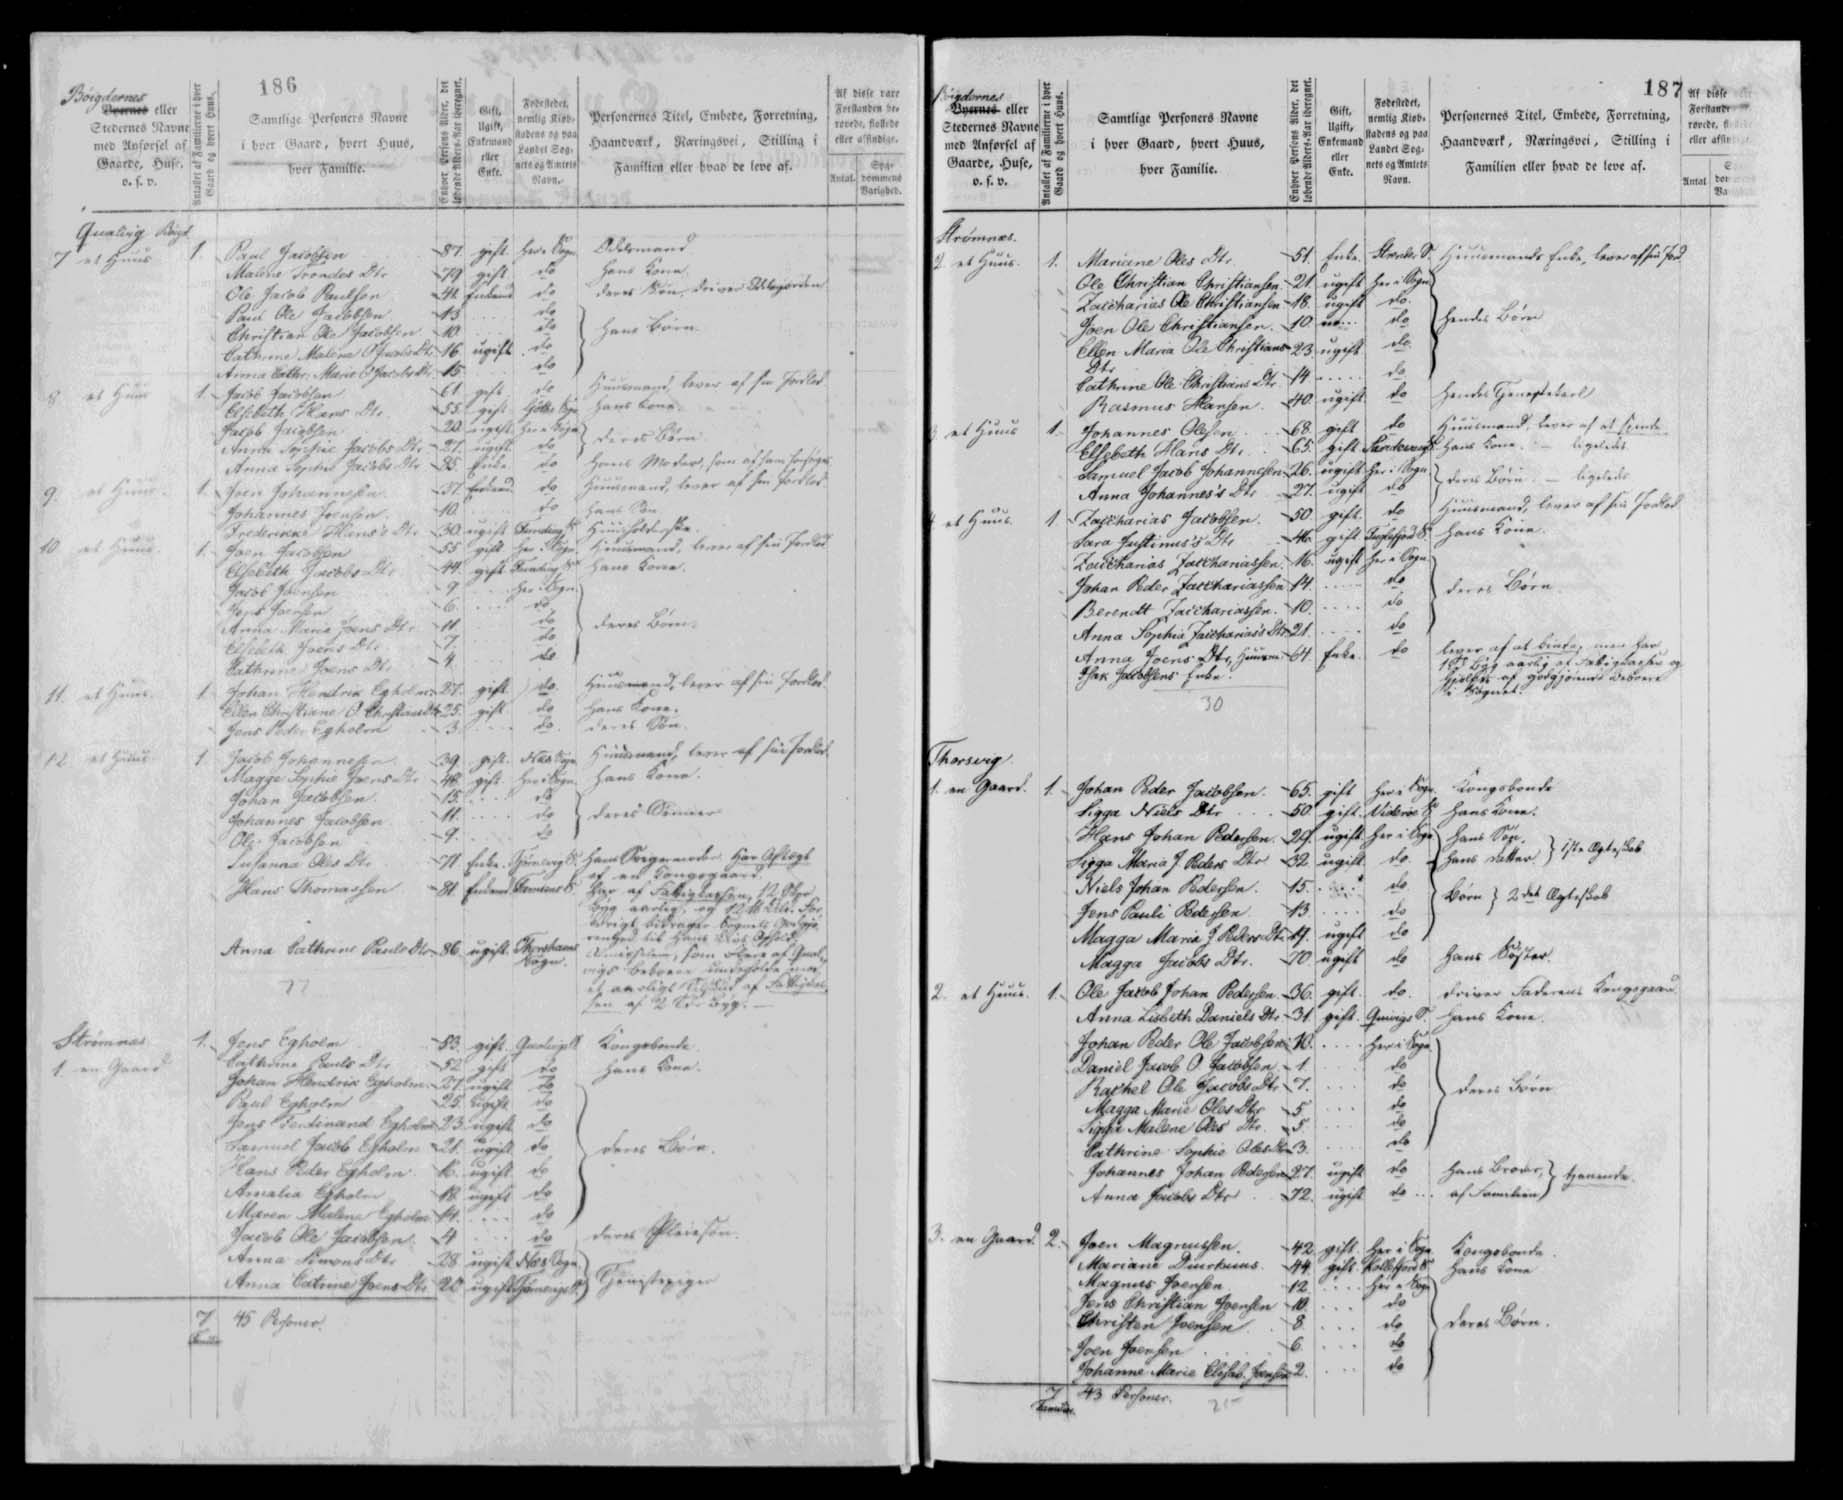 186
Bøigdernes
Byernes eller
Stedernes Navne
med Anførsel af
Gaarde, Huse,
o. s. v.
Antallet af Familierne i hver
Gaard og hvert Huus.
Samtlige Personers Navne
i hver Gaard, hvert Huus,
hver Familie.
Enhver Persons Alder, det
løbende Alders-Aar iberegnet.
Gift,
Ugift,
Enkemand
eller
Enke.
Fødestedet,
nemlig Kiøb-
stadens og paa
Landet Sog-
nets og Amtets
Navn.
Personernes Titel, Embede, Forretning,
Haandværk, Næringsvei, Stilling i
Familien eller hvad de leve af.
Af disse vare
Forstanden be-
røvede, fjollede
eller afsindige.
Antal.
Syg-
dommens
Varighed.
Qvalvig Bøigd
7 et Huus 1. Paul Jacobsen 87. gift. Her i Sogn Odelsmand
Malene Tróndes Dtr 79 gift do Hans Kone
Ole Jacob Paulsen 41 Enkemd do deres Søn, driver Odelsjorden
Paul Ole Jacobsen 13 do
Christian Ole Jacobsen 10 do Hans Børn
Cathrine Malene O Jacobs Dtr 16 ugift do
Anna Cathr. Marie O Jacobs Dtr 15 do
8 et Huus 1. Jacob Jacobsen 61 gift do Huusmand, lever af sin Jordlod
Elsebeth Hans Dtr 55 gift Hans Kone
Jacob Jacobsen 20 ugift Her i Sogn
Anna Sophie Jacobs Dtr 27 ugift do deres Børn
Anna Sophie Jacobs Dtr 85 Enke do Hans Moder, som af ham forsørges
9. et Huus 1. Joen Johannesen 37 Enkemd. do Huusmand, lever af sin Jordlod
Johannes Joensen 10. do Hans Søn
Frederikke Hans's Dtr 30. ugift Huusholderske
10 et Huus 1. Joen Jacobsen 55 gift Her i Sogn Huusmand, lever af sin Jordlod
Elsebeth Jacobs Dtr 44. gift Hans Kone.
Jacob Joensen 9 Her i Sogn
Hans Joensen 6. do
Anna Maria Joens Dtr 11 do deres Børn.
Elsebeth Joens Dtr 7 do
Cathrine Joens Dtr 4 do
11. et Huus 1 Johan Hendrik Egholm 27. gift do Huusmand, lever af sin Jordlod
Ellen Christiane O Christians Dtr 25. gift do Hans Kone.
Jens Peder Egholm 3 do deres Søn.
12 et Huus 1 Jacob Johannesen 39. gift. Næs Sogn Huusmand, lever af sin Jordlod.
Magga Sophie Joens Dtr 48 gift Her i Sogn Hans Kone.
Johan Jacobsen. 15. do
Johannes Jacobsen 11. do deres Sønner
Ole Jacobsen 9. do
Susanna Oles Dtr 71 Enke. Hans Svigermoder. Har Aftægt
af en Kongsgaard.
Hans Thomassen 81 Enkemd Har af Fattigkassen 12 Skpr
Byg aarlig, og 12 ℔ Uld. For
Anna Cathrine Pauls Dtr 86. ugift. Thorshavns
Sogn. Almisselem,
et aarligt Tilskud af Fattigkas-
sen af 2 Tdr Byg. —
77
Strømnæs 1. Jens Egholm 53. gift. Kongsbonde.
1. en Gaard Cathrine Pauls Dtr 52 gift do Hans Kone.
Johan Hendrik Egholm 27. ugift do
Paul Egholm 25. ugift do
Jens Ferdinand Egholm 23. ugift do
Samuel Jacob Egholm 21. ugift do deres Børn.
Hans Peder Egholm ugift do
Amalia Egholm 18. ugift do
Maren Malene Egholm 14. do
Jacob Ole Jacobsen 4 do deres Pleiesøn.
Anna Simons Dtr 28 ugift Næs Sogn
Anna Catrine Joens Dtr 20 ugift Tjenestepiger
7 45 Personer.
Familier
187
Bøigdernes
Byernes eller
Stedernes Navne
med Anførsel af
Gaarde, Huse,
o. s. v.
Antallet af Familierne i hver
Gaard og hvert Huus.
Samtlige Personers Navne
i hver Gaard, hvert Huus,
hver Familie.
Enhver Persons Alder, det
løbende Alders-Aar iberegnet.
Gift,
Ugift,
Enkemand
eller
Enke.
Fødestedet,
nemlig Kiøb-
stadens og paa
Landet Sog-
nets og Amtets
Navn.
Personernes Titel, Embede, Forretning,
Haandværk, Næringsvei, Stilling i
Familien eller hvad de leve af.
Af disse
Forstande
røvede,
eller afsi
Antal
Strømnæs.
2. et Huus. 1. Mariane Oles Dtr 51. Enke. Huusmands Enke, lever af sin Jord
Ole Christian Christiansen 21. ugift Her i Sogn
Zaccharias Ole Christiansen 18. ugift do.
Joen Ole Christiansen. 10. do Hendes Børn
Ellen Maria Ole Christians 23. ugift do.
Dtr
Cathrine Ole Christians Dtr 14 do.
Rasmus Hansen. 40. ugift do Hendes Tjenestekarl
3 et Huus 1. Johannes Olesen 68. gift do Huusmand, lever af at binde
Elsebeth Hans Dtr 65. gift Hans Kone. — ligeledes
Samuel Jacob Johannesen 26. ugift Her i Sogn
Anna Johannes's Dtr 27. ugift do deres Børn. — ligeledes
4 et Huus. 1. Zaccharias Jacobsen. 50. gift. do Huusmand, lever af sin Jordlod
Sara Justinus's Dtr 46. gift Fuglefjord S. Hans Kone.
Zaccharias Zacchariassen. 16. ugift Her i Sogn
Johan Peder Zacchariassen 14 do deres Børn.
Berendt Zacchariassen. 10. do
Anna Sophia Zaccharias's Dtr 21. do
Anna Joens Dtr, Huusm. 64. Enke. do lever af at binde, men har
Isak Jacobsens Enke. 1 Td. Byg aarlig af Fattigkassen og
hjælpes af godgjørende Beboere
i Sognet.
30
Thorsvig
1. en Gaard. 1. Johan Peder Jacobsen. 65. gift Her i Sogn. Kongsbonde
Sigga Niels Dtr 50. gift. Viderø S. Hans Kone.
Hans Johan Pedersen 29. ugift Her i Sogn Hans Søn.
Sigga Maria J Peders Dtr 32. ugift do. Hans Datter } 1ste Ægteskab
Niels Johan Pedersen. 15. do
Jens Pauli Pedersen 13. do Børn } 2det Ægteskab
Magga Maria J Peders Dtr 19. ugift do
Magga Jacobs Dtr. 70 ugift do Hans Søster
2. et Huus. 1. Ole Jacob Johan Pedersen 36. gift. do. driver Faderens Kongsgaard.
Anna Lisbeth Daniels Dtr 31. gift. Qvivigs S. Hans Kone.
Johan Peder Ole Jacobsen 10. Her i Sogn
Daniel Jacob O. Jacobsen 1. do
Rachel Ole Jacobs Dtr 7. do deres Børn
Magga Marie Oles Dtr 5 do
Sigga Malene Oles Dtr. 5. do
Cathrine Sophie Oles Dtr 3. do
Johannes Johan Pedersen 27. ugift do Hans Broder,
Anna Jacobs Dtr 72. ugift do af Familien } tjenende
3. en Gaard. 2. Joen Magnussen. 42 gift. Her i Sogn Kongsbonde.
Mariane Duurhuus. 44. gift. Kollefjord S. Hans Kone
Magnus Joensen 12 Her i Sogn
Jens Christian Joensen 10. do
Christen Joensen 8. do deres Børn.
Joen Joensen 6. do
Johanne Marie Elisab. Joensen 2. do
7 43 Personer.
Familier.